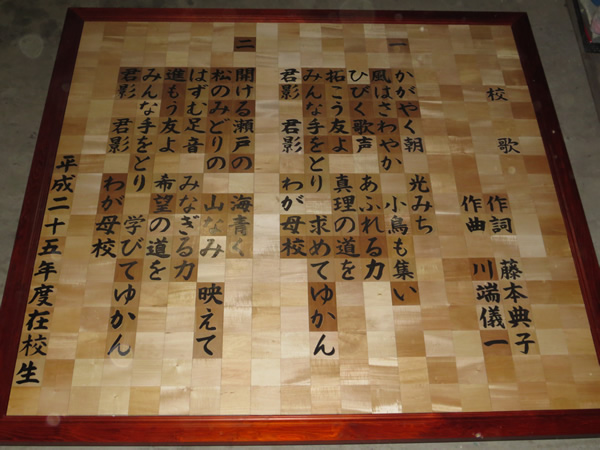 校歌
作詞 藤本典子
作曲 川端儀一
一
かがやく朝 光みち
風はさわやか 小鳥も集い
ひびく歌声 あふれる力
拓こう友よ 真理の道を
みんな手をとり 求めてゆかん
君影 君影 わが母校
二
開ける瀬戸の 海青く
松のみどりの 山なみ映えて
はずむ足音 みなぎる力
進もう友よ 希望の道を
みんな手をとり 学びてゆかん
君影 君影 わが母校
平成二十五年度在校生